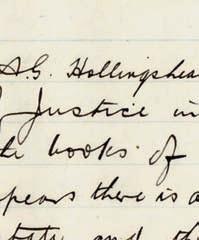 A.G. Hollingshea
Justice in
he books of
pears there is a
and th